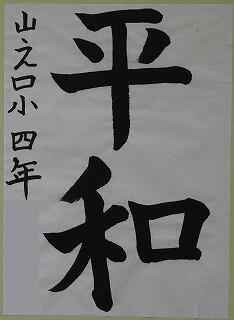 平和
山之口小四年